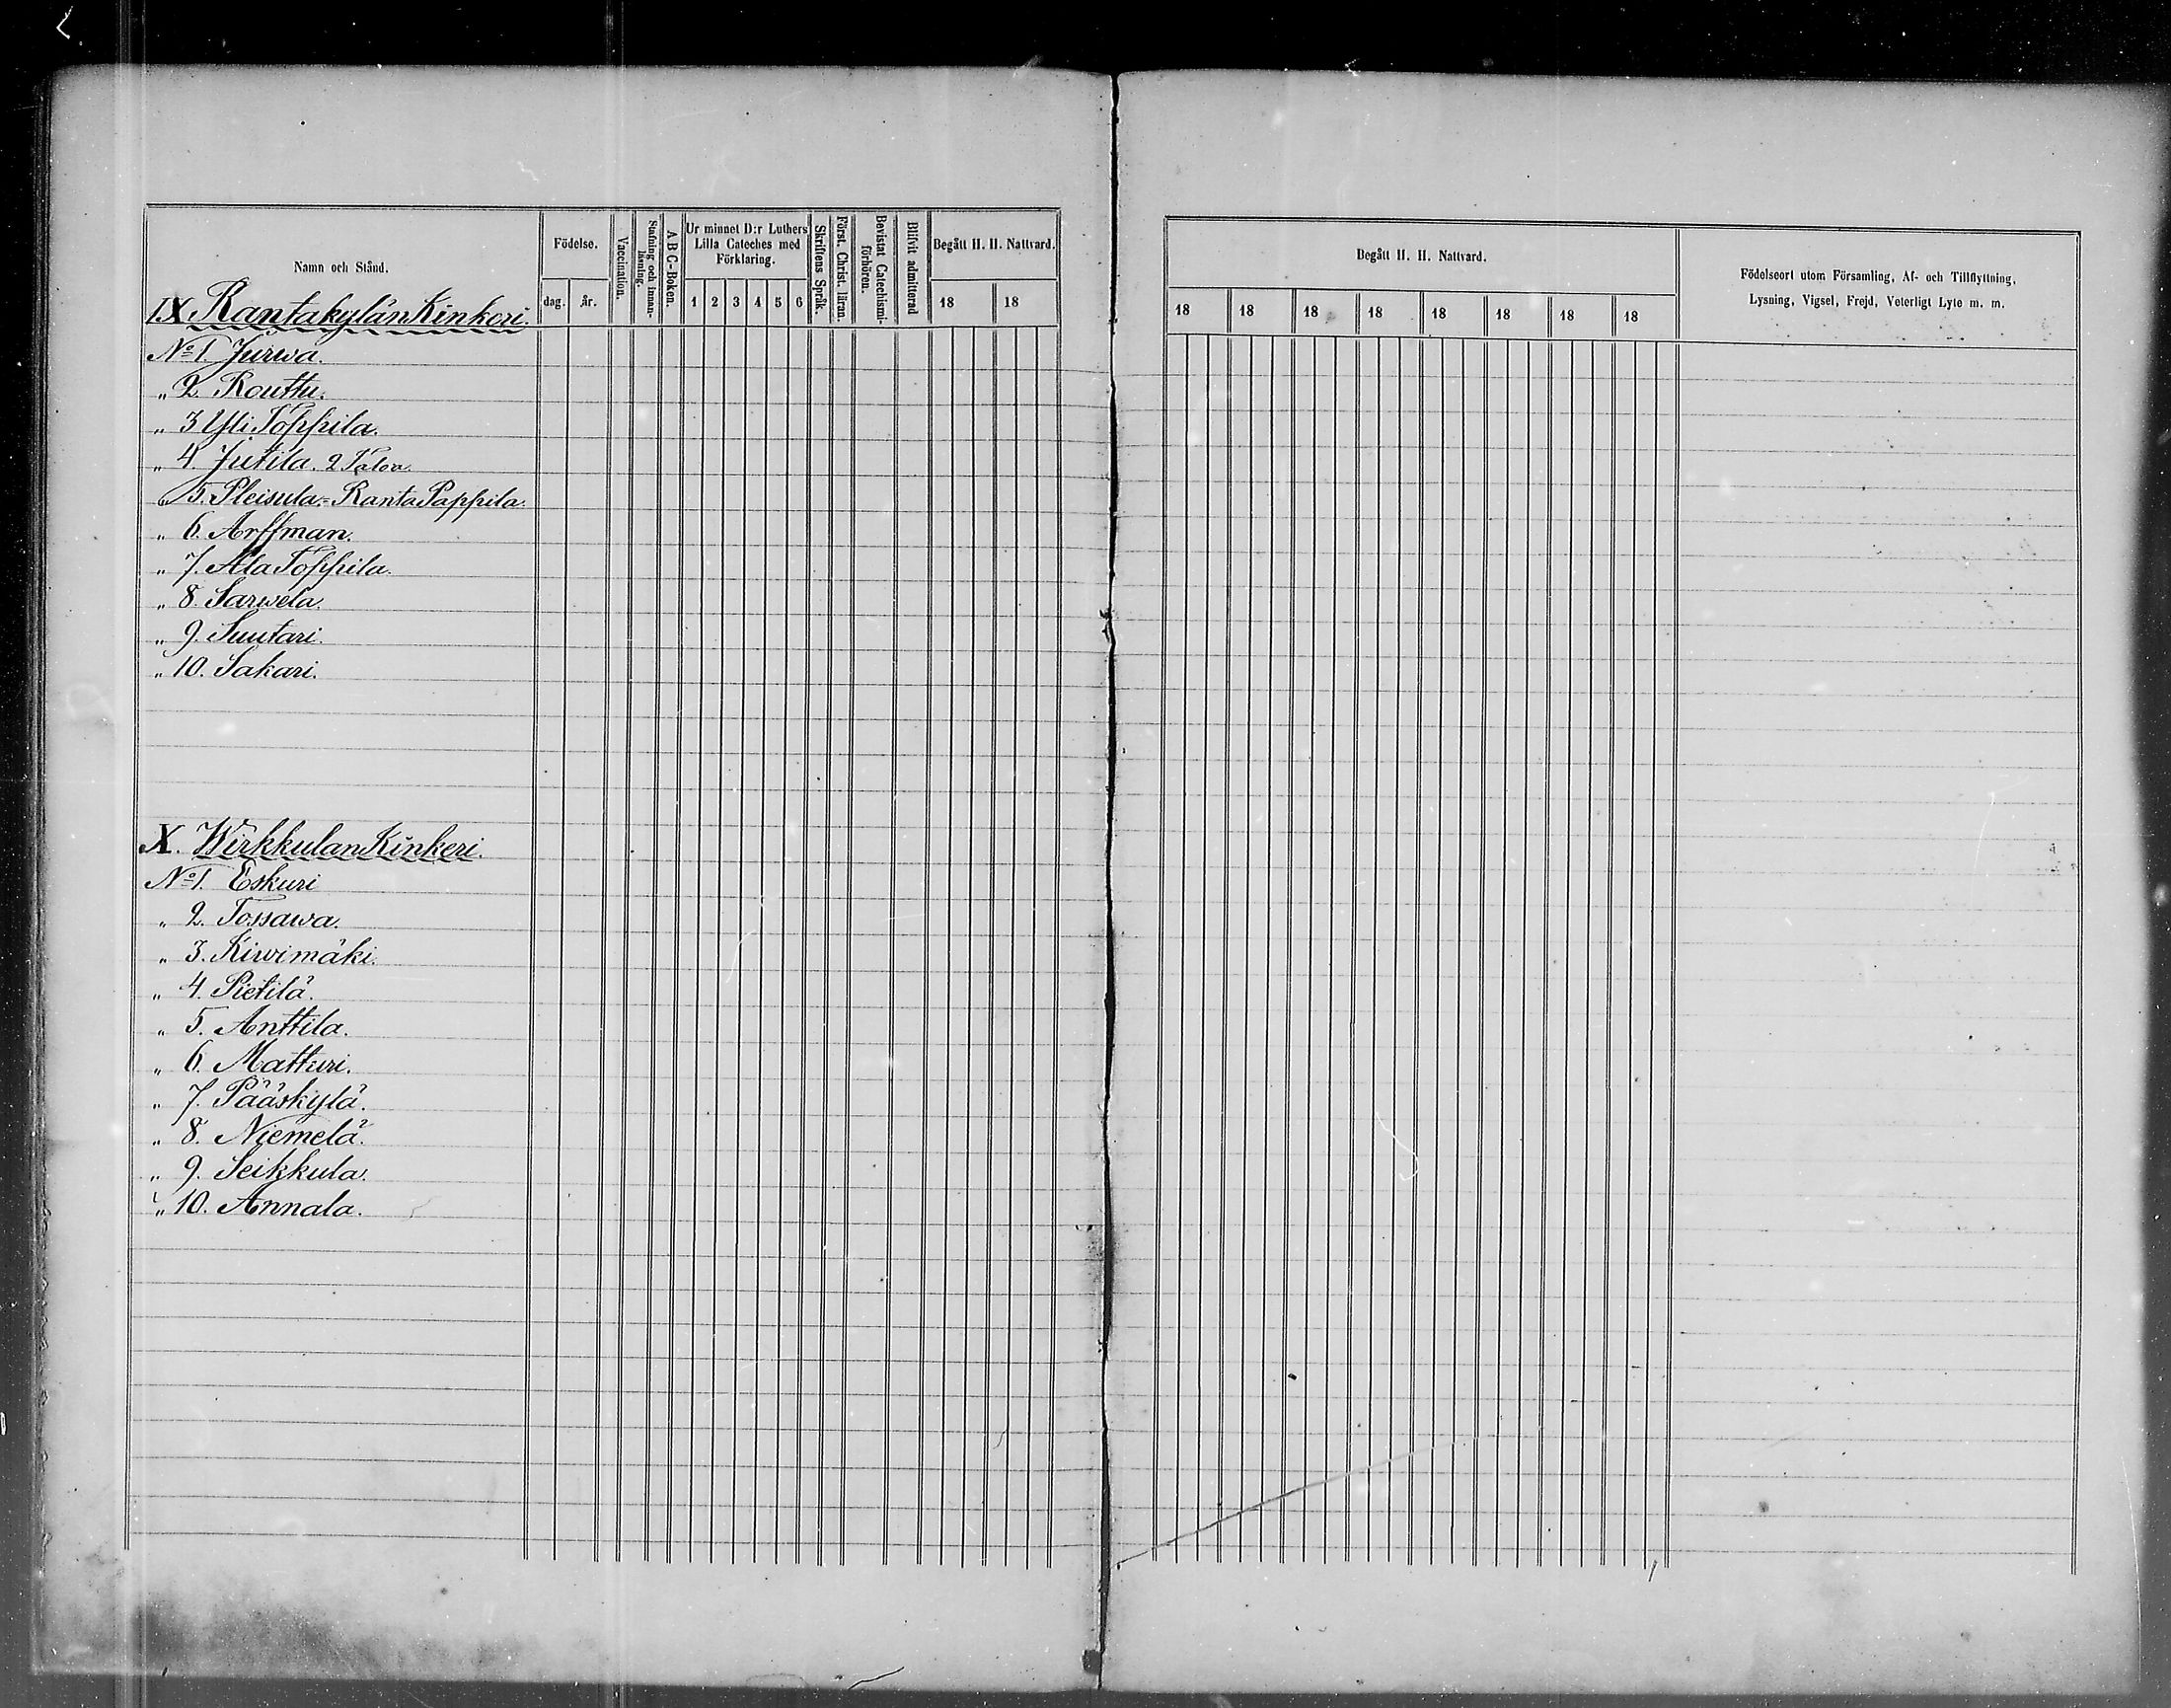 Namn och Stånd.
Födelse.
dag.
år.
Vaccination.
Stafning och innan-
läsning.
A B C-Boken.
Ur minnet D:r Luthers
Lilla Cateches med
Förklaring.
1 2 3 4 5 6
Skriftens Språk.
Först. Christ. läran.
Bevistat Catechismi-
förhören.
Blifvit admitterad
Begått H. H. Nattvard.
18 18
IX Rantakylän Kinkeri.
No 1. Jurwa.
„ 2. Routtu.
„ 3 Yli Toppila.
„ 4. Jutila. 2 Taloa.
„ 5. Pleisula-Ranta Pappila.
„ 6. Arffman.
„ 7. Ala Toppila.
„ 8. Sarwela.
„ 9. Suutari.
„ 10. Sakari.
X. Wirkkulan Kinkeri.
No 1. Eskuri
„ 2. Tossawa.
„ 3. Kiwimäki.
„ 4. Pietilä.
„ 5. Anttila.
„ 6. Matturi.
„ 7. Pääskylä.
„ 8. Niemelä.
„ 9. Seikkula.
„ 10. Annala.
Begått H. H. Nattvard.
18 18 18 18 18 18 18 18
Födelseort utom Församling, Af- och Tillflyttning,
Lysning, Vigsel, Frejd, Veterligt Lyte m. m.